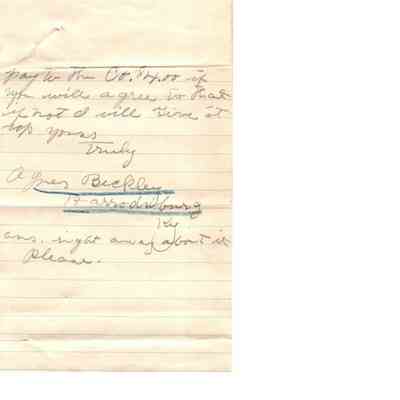 pay to the Co. $4.00 if
you will agree to that
if not I will give it
up yours
Truly
Agnes Beckley
Harrodsburg
Ky
ans. right away about it
Please.